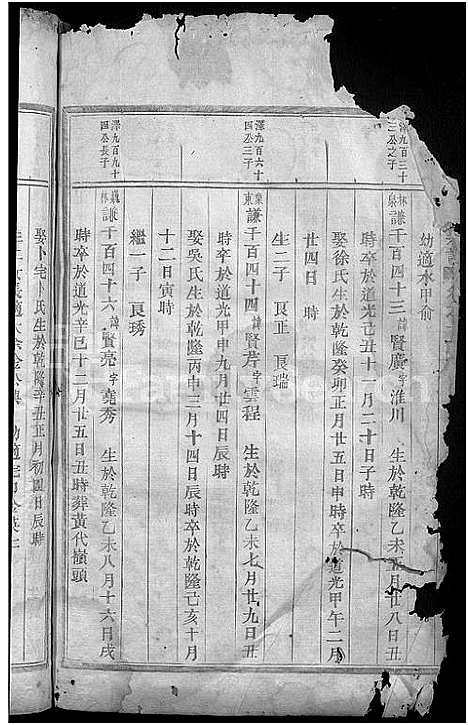 幼適水甲俞
澤九百三十三公之子
林泉 謙千百四十三 諱賢廣 字淮川 生於乾隆乙未五月廿八日丑
時卒於道光己丑十一月二十日子時
娶徐氏生於乾隆癸卯正月廿五日申時卒於道光甲午二月
廿四日 時
生二子 良正 良瑞
澤九百六十四公三子
東 謙千百四十四 諱賢芹 字雲程 生於乾隆乙未七月廿九日丑
時卒於道光甲申九月廿四日辰時
娶吳氏生於乾隆丙申三月十四日辰時卒於乾隆己亥十月
十二日寅時
繼一子 良琇
澤九百九十四公長子
林 謙千百四十六 諱賢亮 字堯秀 生於乾隆乙未八月十六日戌
時卒於道光辛巳十二月廿五日丑時葬黃代嶺頭
娶卜宅卜氏生於乾隆辛丑正月初四日辰時